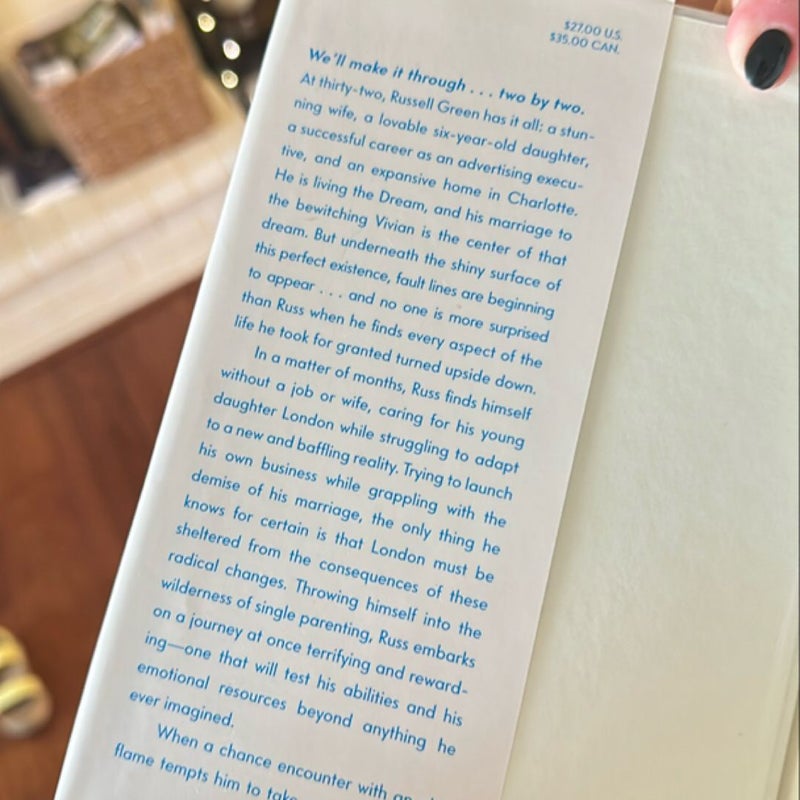 $27.00 U.S.
$35.00 CAN.
We'll make it through . . . two by two.
At thirty-two, Russell Green has it all: a stun-
ning wife, a lovable six-year-old daughter,
a successful career as an advertising execu-
tive, and an expansive home in Charlotte.
He is living the Dream, and his marriage to
the bewitching Vivian is the center of that
dream. But underneath the shiny surface of
this perfect existence, fault lines are beginning
to appear . . . and no one is more surprised
than Russ when he finds every aspect of the
life he took for granted turned upside down.
In a matter of months, Russ finds himself
without a job or wife, caring for his young
daughter London while struggling to adapt
to a new and baffling reality. Trying to launch
his own business while grappling with the
demise of his marriage, the only thing he
knows for certain is that London must be
sheltered from the consequences of these
radical changes. Throwing himself into the
wilderness of single parenting, Russ embarks
on a journey at once terrifying and reward-
ing—one that will test his abilities and his
emotional resources beyond anything he
ever imagined.
When a chance encounter with an
flame tempts him to take